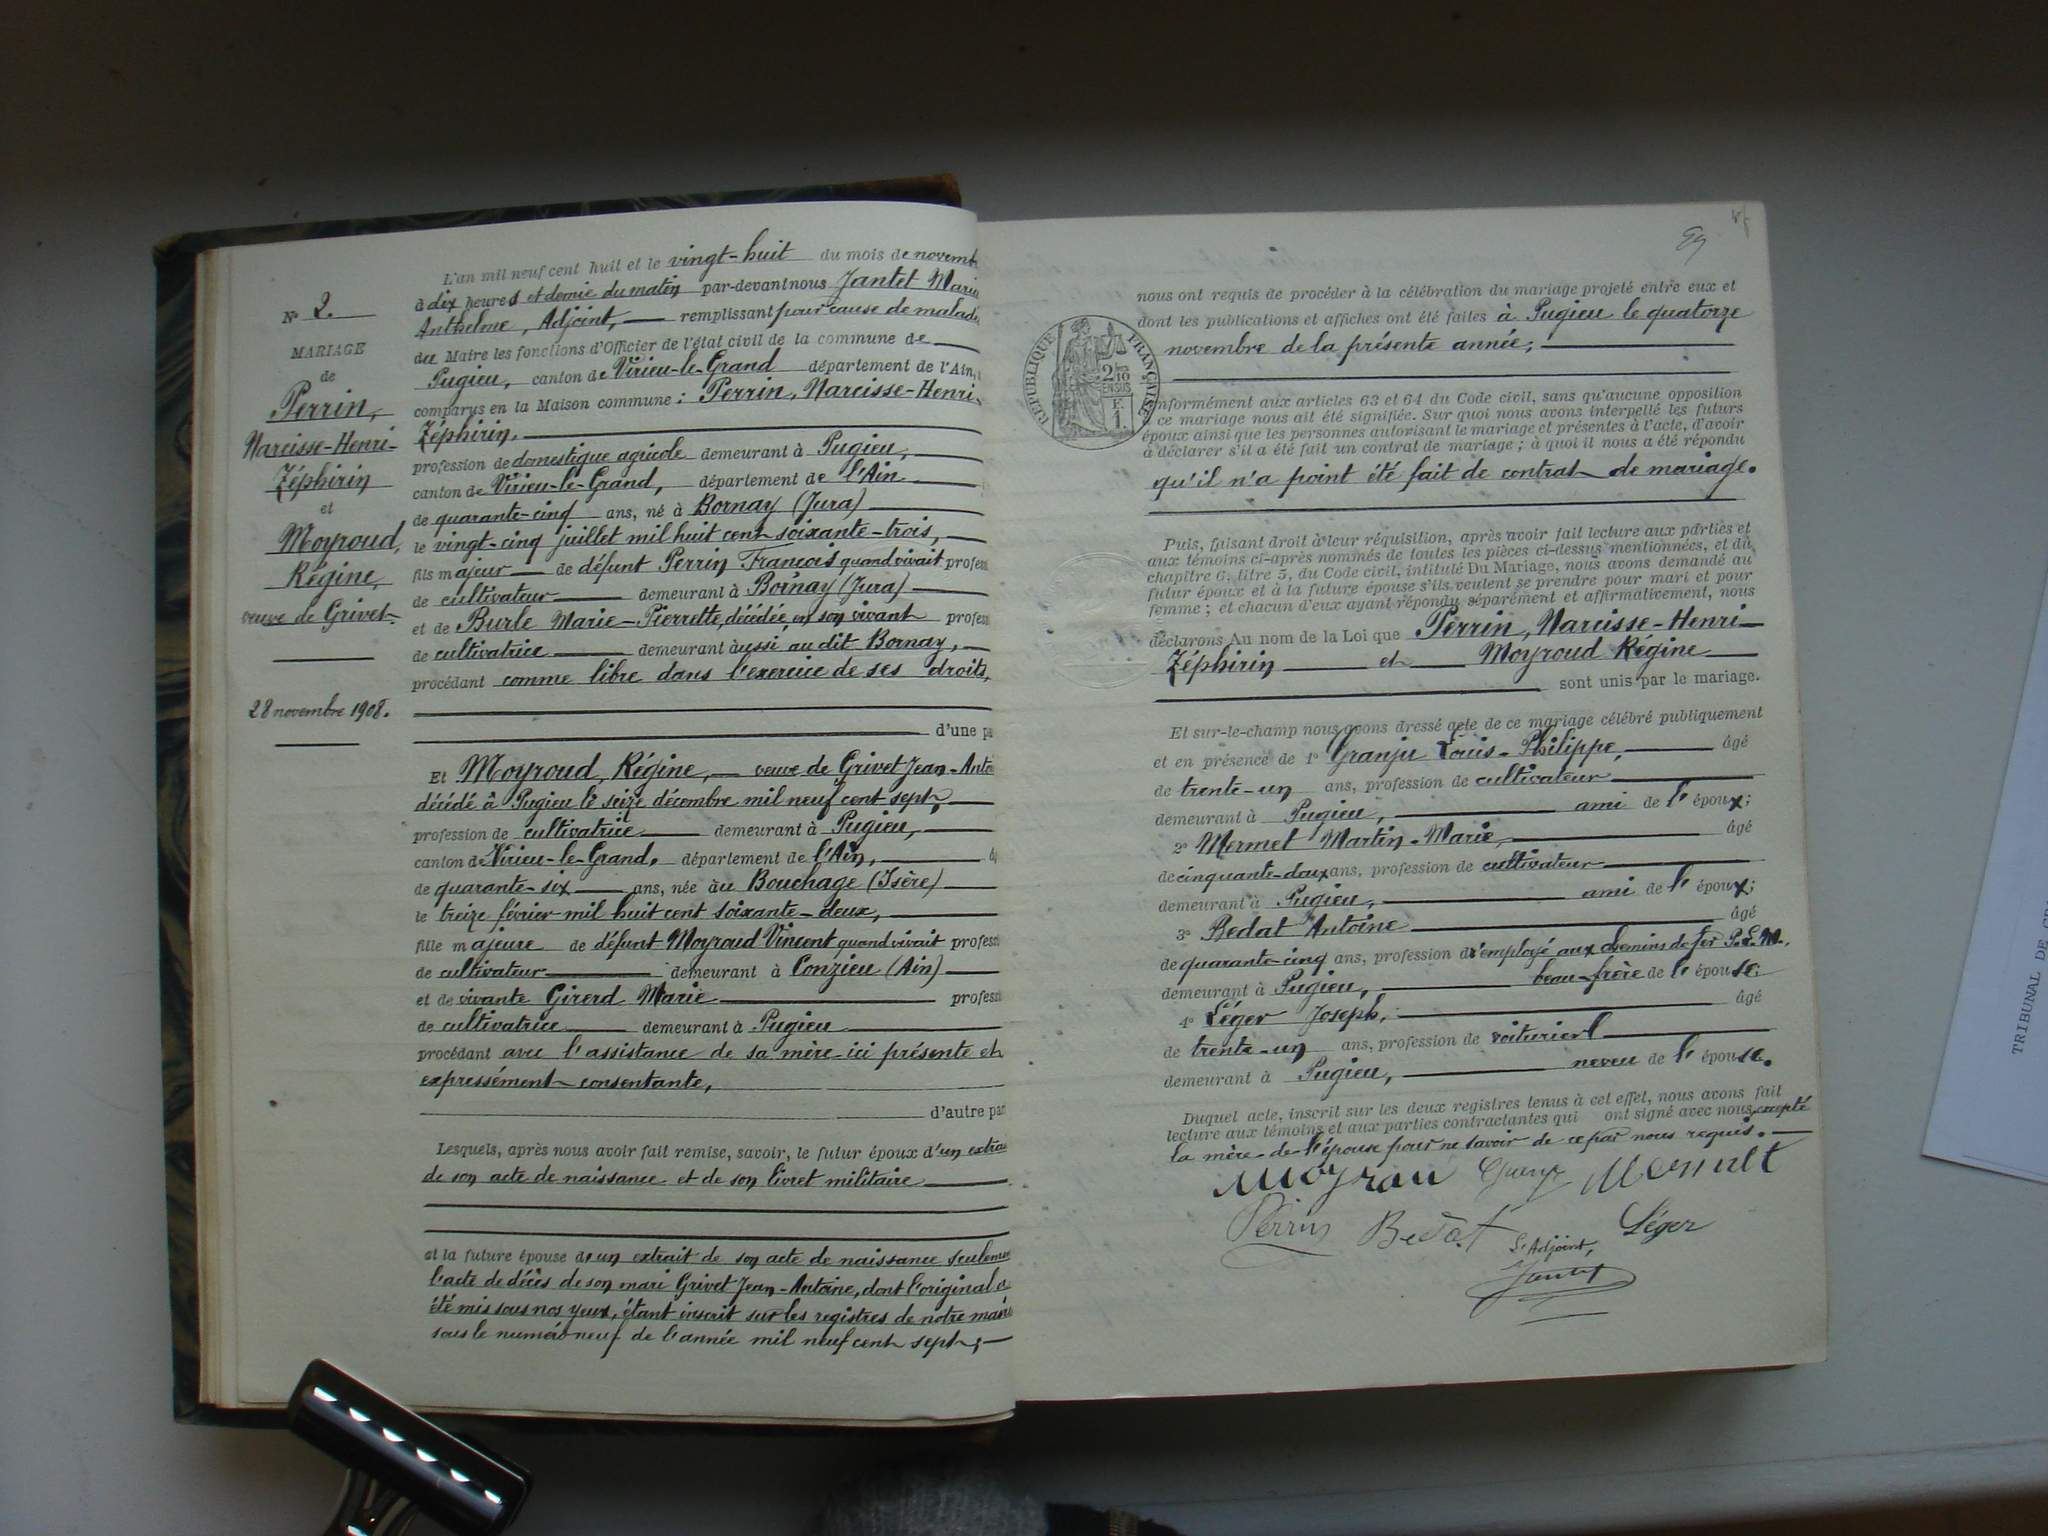 N° 2.
MARIAGE
de
Perrin,
Narcisse-Henri-
Zéphirin
et
Moyroud,
Régine,
veuve de Grivet
28 novembre 1908.
L'an mil neuf cent huit et le vingt-huit du mois de novemb
à dix heures et demie du matin par-devant nous Jantet Mariu
Anthelme, Adjoint, remplissant pour cause de malad
du Maire les fonctions d'Officier de l'état civil de la commune de
Pugieu, canton de Virieu-le-Grand département de l'Ain,
comparus en la Maison commune : Perrin, Narcisse-Henri-
Zéphirin,
profession de domestique agricole demeurant à Pugieu,
canton de Virieu-le-Grand, département de l'Ain
de quarante-cinq ans, né à Bornay (Jura)
le vingt-cinq juillet mil huit cent soixante-trois,
fils majeur de défunt Perrin François quand vivait profess
de cultivateur demeurant à Bornay (Jura)
et de Burle Marie-Pierrette, décédée, en son vivant profess
de cultivatrice demeurant aussi au dit Bornay,
procédant comme libre dans l'exercice de ses droits,
d'une pa
Et Moyroud, Régine, veuve de Grivet Jean-Antoi
décédé à Pugieu le seize décembre mil neuf cent sept,
profession de cultivatrice demeurant à Pugieu,
canton de Virieu-le-Grand, département de l'Ain, â
de quarante-six ans, née au Bouchage (Isère)
le treize février mil huit cent soixante-deux,
fille majeure de défunt Moyroud Vincent quand vivait professi
de cultivateur demeurant à Conzieu (Ain)
et de vivante Girerd Marie professi
de cultivatrice demeurant à Pugieu
procédant avec l'assistance de sa mère ici présente et
expressément consentante,
d'autre par
Lesquels, après nous avoir fait remise, savoir, le futur époux d'un extrai
de son acte de naissance et de son livret militaire
et la future épouse d'un extrait de son acte de naissance seulemen
l'acte de décès de son mari Grivet Jean-Antoine, dont l'original a
été mis sous nos yeux, étant inscrit sur les registres de notre mairie
sous le numéro neuf de l'année mil neuf cent sept;
59
nous ont requis de procéder à la célébration du mariage projeté entre eux et
dont les publications et affiches ont été faites à Pugieu le quatorze
novembre de la présente année;
RÉPUBLIQUE FRANÇAISE
nformément aux articles 63 et 64 du Code civil, sans qu'aucune opposition
à ce mariage nous ait été signifiée. Sur quoi nous avons interpellé les futurs
époux ainsi que les personnes autorisant le mariage et présentes à l'acte, d'avoir
à déclarer s'il a été fait un contrat de mariage ; à quoi il nous a été répondu
qu'il n'a point été fait de contrat de mariage.
Puis, faisant droit à leur réquisition, après avoir fait lecture aux parties et
aux témoins ci-après nommés de toutes les pièces ci-dessus mentionnées, et du
chapitre 6, titre 5, du Code civil, intitulé Du Mariage, nous avons demandé au
futur époux et à la future épouse s'ils veulent se prendre pour mari et pour
femme ; et chacun d'eux ayant répondu séparément et affirmativement, nous
déclarons Au nom de la Loi que Perrin, Narcisse-Henri-
Zéphirin et Moyroud Régine
sont unis par le mariage.
Et sur-le-champ nous avons dressé acte de ce mariage célébré publiquement
et en présence de 1° Granju Louis-Philippe, âgé
de trente-un ans, profession de cultivateur
demeurant à Pugieu, ami de l'époux;
2° Mermet Martin-Marie, âgé
de cinquante-deux ans, profession de cultivateur
demeurant à Pugieu, ami de l'époux;
3° Bedat Antoine âgé
de quarante-cinq ans, profession d'employé aux chemins de fer P.L.M.,
demeurant à Pugieu, beau-frère de l'épouse;
4° Léger Joseph, âgé
de trente-un ans, profession de voiturier
demeurant à Pugieu, neveu de l'épouse.
Duquel acte, inscrit sur les deux registres tenus à cet effet, nous avons fait
lecture aux témoins et aux parties contractantes qui ont signé avec nous, excepté
la mère de l'épouse pour ne savoir de ce par nous requis.
Moyrou Granju
Perrin Bedat Léger
L'Adjoint,
Jantet
TRIBUNAL DE